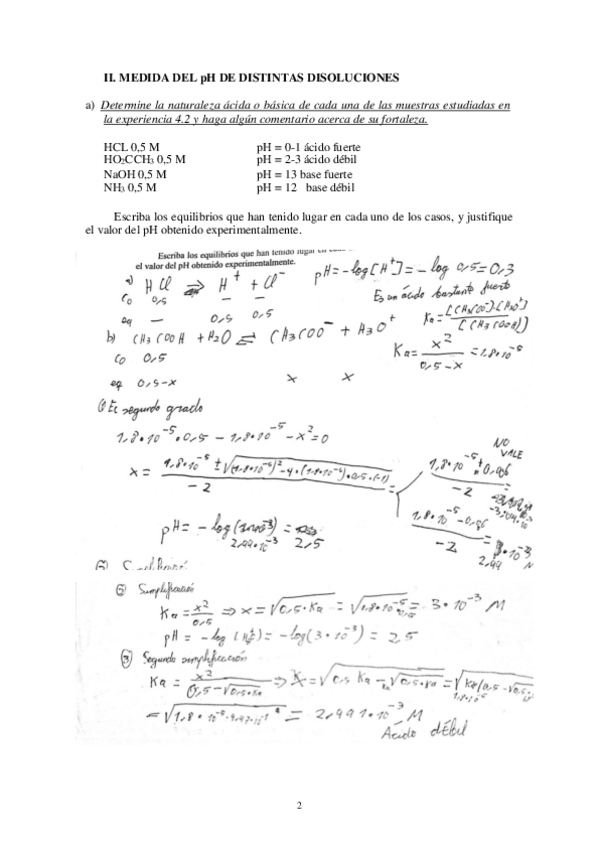 II. MEDIDA DEL pH DE DISTINTAS DISOLUCIONES
a) Determine la naturaleza ácida o básica de cada una de las muestras estudiadas en
la experiencia 4.2 y haga algún comentario acerca de su fortaleza.
HCL 0,5 M pH = 0-1 ácido fuerte
HO₂CCH₃ 0,5 M pH = 2-3 ácido débil
NaOH 0,5 M pH = 13 base fuerte
NH₃ 0,5 M pH = 12 base débil
Escriba los equilibrios que han tenido lugar en cada uno de los casos, y justifique
el valor del pH obtenido experimentalmente.
Escriba los equilibrios que han tenido lugar en
el valor del pH obtenido experimentalmente.
a) HCl ⇌ H⁺ + Cl⁻ pH = -log[H⁺] = -log 0,5 = 0,3
Co 0,5 — — Es un ácido bastante fuerte
eq — 0,5 0,5 Ka = [CH₃COO⁻]·[H₃O⁺] / [CH₃COOH]
b) CH₃COOH + H₂O ⇌ CH₃COO⁻ + H₃O⁺
Co 0,5 Ka = x² / 0,5-x = 1,8·10⁻⁵
eq 0,5-x x x
Ec segundo grado
1,8·10⁻⁵·0,5 - 1,8·10⁻⁵ - x² = 0
NO VALE
x = 1,8·10⁻⁵ ± √(1,8·10⁻⁵)² - 4·(1,8·10⁻⁵)·0,5·(-1) / -2
pH = -log( 2,99·10⁻³ ) = 2,5
b) Simplificación
Ka = x² / 0,5 ⇒ x = √0,5·Ka = √1,8·10⁻⁵·0,5 = 3·10⁻³ M
pH = -log = -log(3·10⁻³) = 2,5
Segunda simplificación
Ka = x² / 0,5 - √0,5·Ka ⇒ x =
= 2,991·10⁻³ M
Ácido débil
2